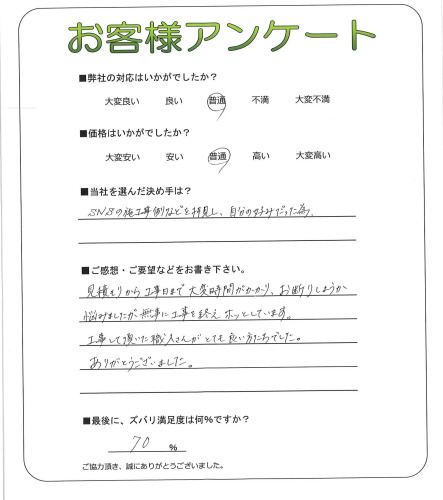 お客様アンケート
■弊社の対応はいかがでしたか？
大変良い 良い 普通 不満 大変不満
■価格はいかがでしたか？
大変安い 安い 普通 高い 大変高い
■当社を選んだ決め手は？
SNSの施工事例などを拝見し、自分の好みだった為。
■ご感想・ご要望などをお書き下さい。
見積もりから工事日まで大変時間がかかり、お断りしようか
悩みましたが無事に工事を終えホッとしています。
工事して頂いた職人さんがとても良い方たちでした。
ありがとうございました。
■最後に、ズバリ満足度は何%ですか？
70 %
ご協力頂き、誠にありがとうございました。